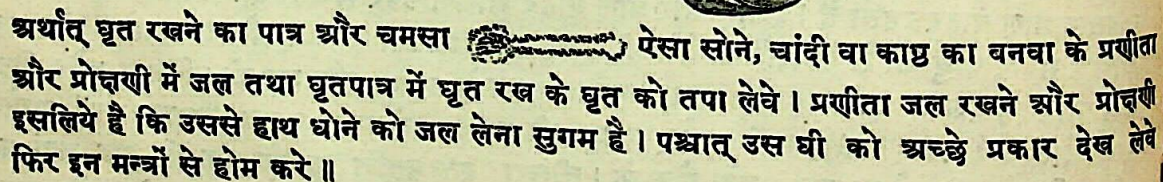 अर्थात् घृत रखने का पात्र और चमसा ऐसा सोने, चांदी वा काष्ठ का बनवा के प्रणीता
और प्रोक्षणी में जल तथा घृतपात्र में घृत रख के घृत को तपा लेवे । प्रणीता जल रखने और प्रोक्षणी
इसलिये है कि उससे हाथ धोने को जल लेना सुगम है । पश्चात् उस घी को अच्छे प्रकार देख लेवे
फिर इन मन्त्रों से होम करे ॥